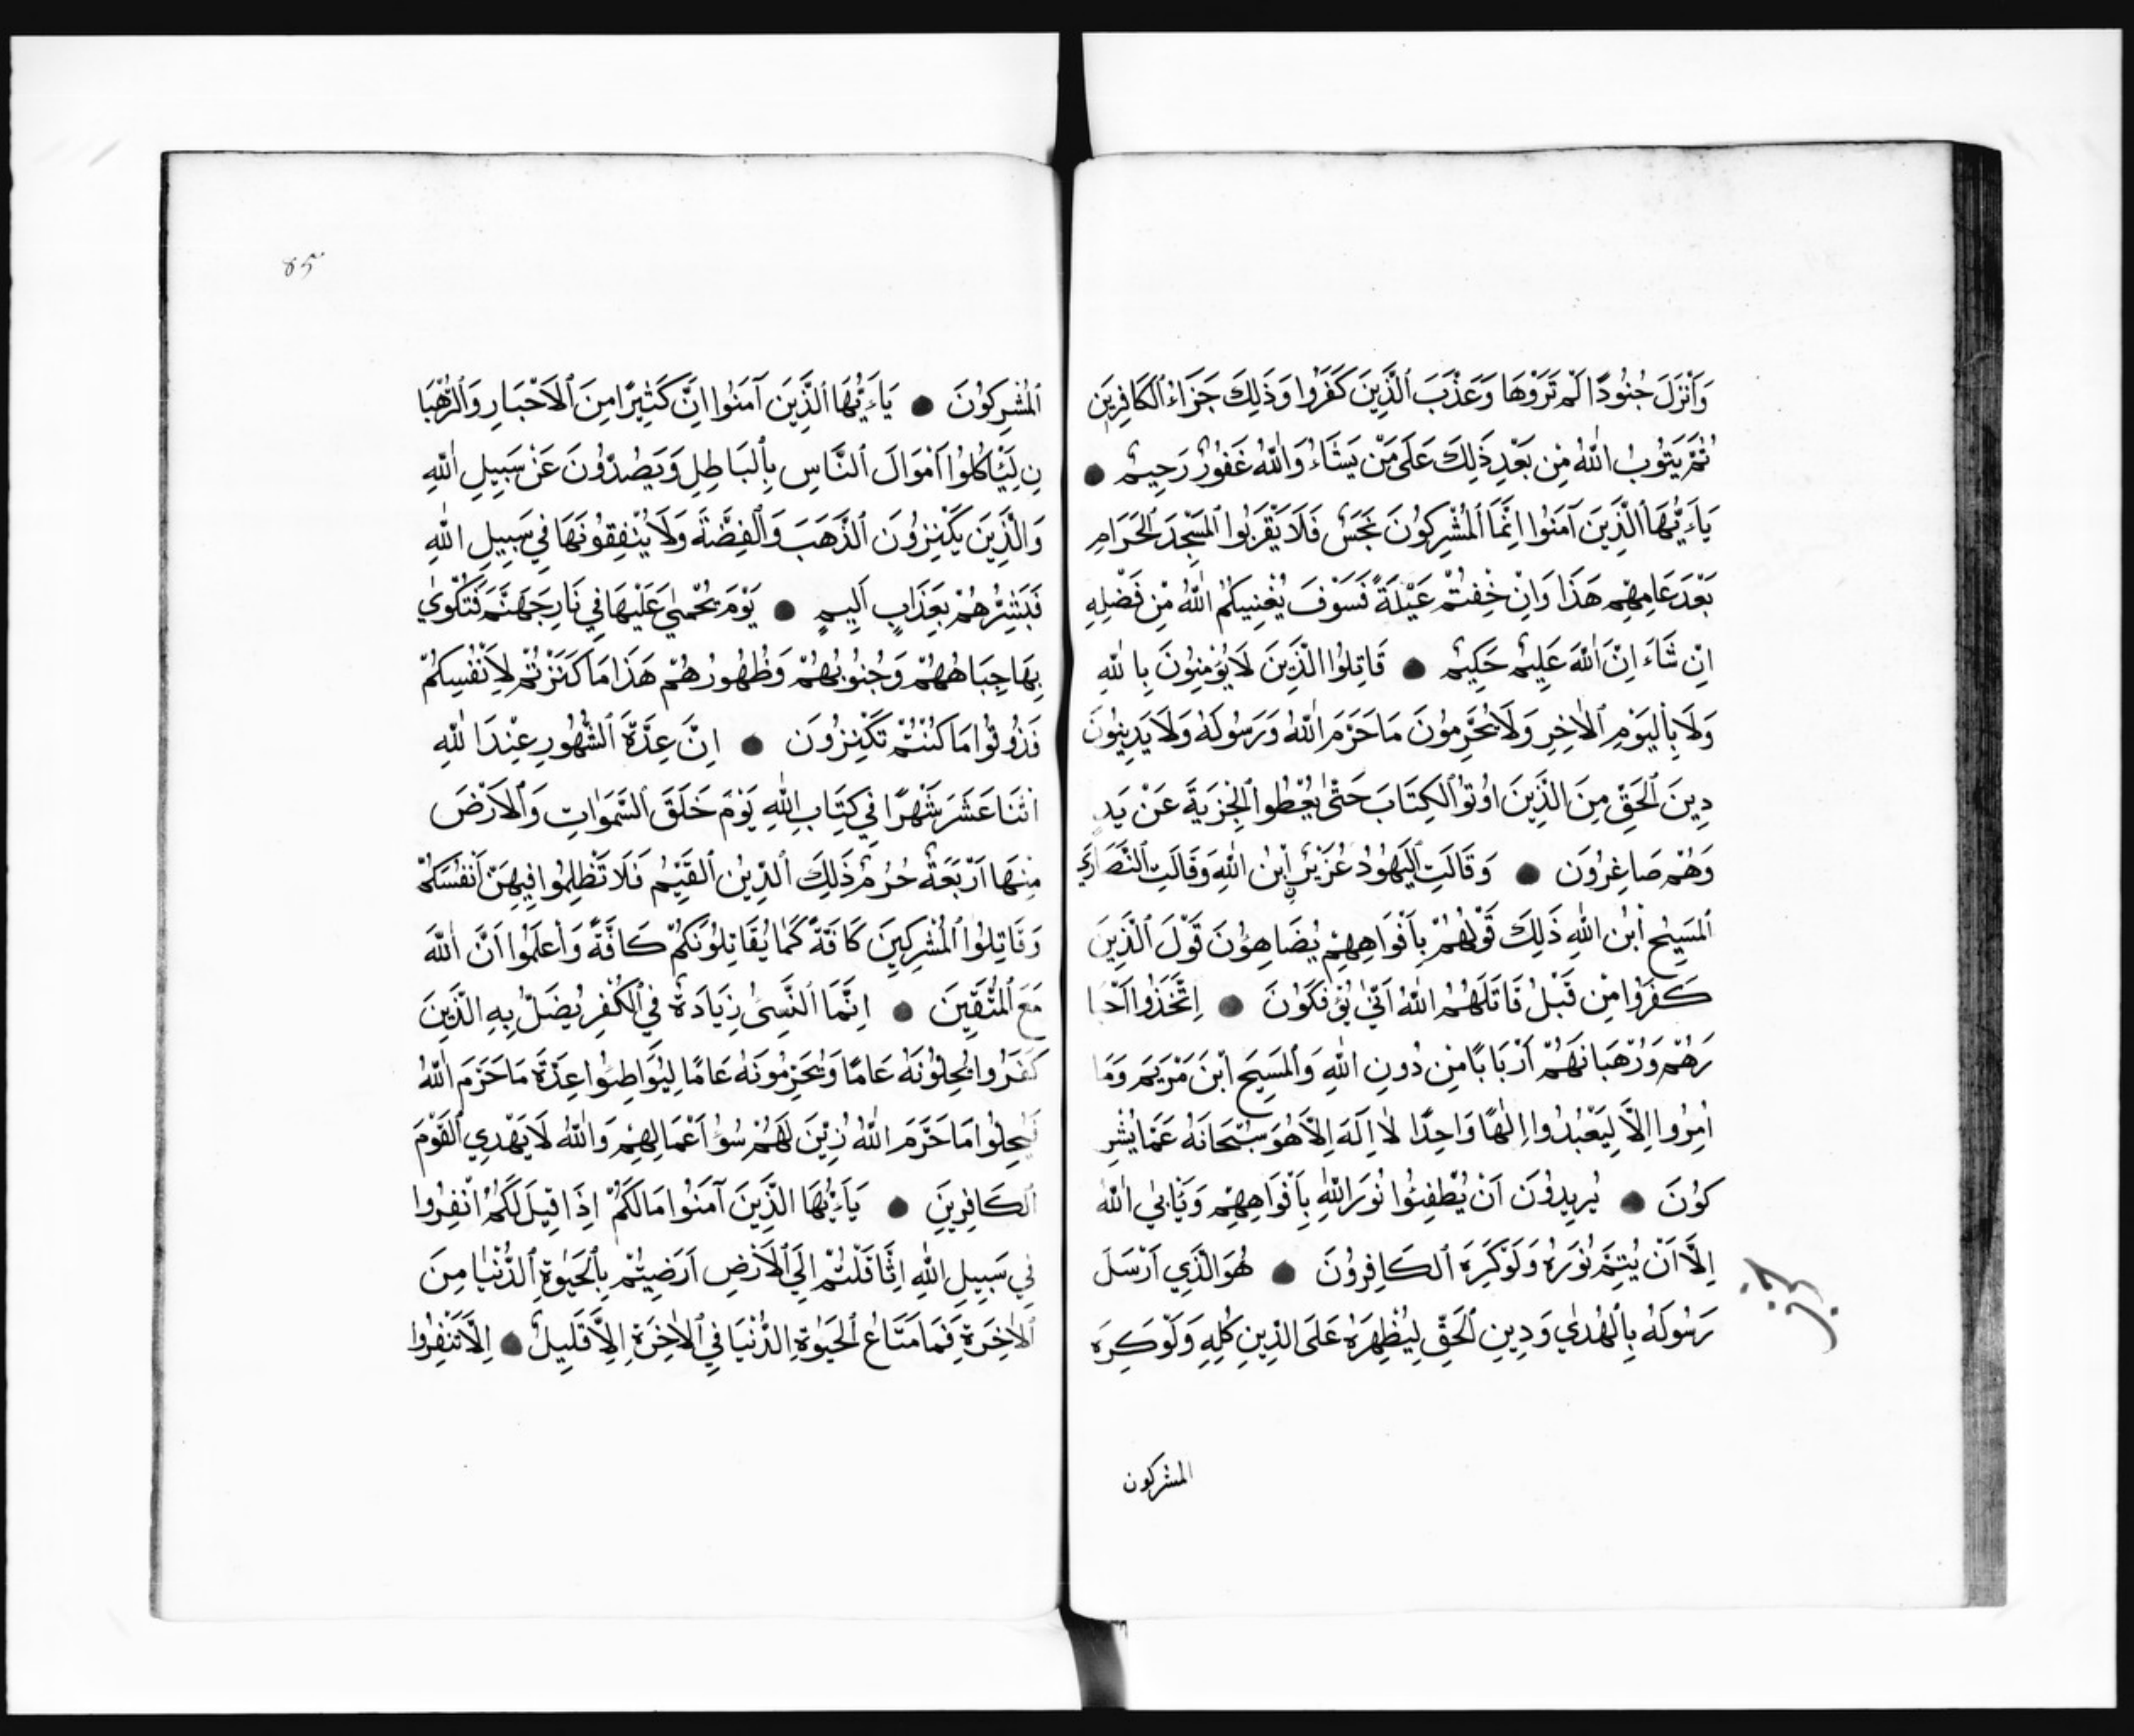 وَأَنْزَلَ جُنُودًا لَمْ تَرَوْهَا وَعَذَّبَ ٱلَّذِينَ كَفَرُوا وَذَلِكَ جَزَاءُ ٱلكَافِرِينَ
ثُمَّ يَتُوبُ اللّٰهُ مِنْ بَعْدِ ذَلِكَ عَلَى مَنْ يَشَاءُ وَاللّٰهُ غَفُورٌ رَحِيمٌ ●
يَاءَيُّهَا ٱلَّذِينَ آمَنُوا اِنَّمَا ٱلْمُشْرِكُونَ نَجَسٌ فَلَا يَقْرَبُوا ٱلْمَسْجِدَ ٱلْحَرَامِ
بَعْدَ عَامِهِمْ هَذَا وَاِنْ خِفْتُمْ عَيْلَةً فَسَوْفَ يُغْنِيكُمُ اللّٰهُ مِنْ فَضْلِهِ
اِنْ شَاءَ اِنَّ اللّٰهَ عَلِيمٌ حَكِيمٌ ● قَاتِلُوا الَّذِينَ لَا يُؤْمِنُونَ بِاللّٰهِ
وَلَا بِٱلْيَوْمِ ٱلْاٰخِرِ وَلَا يُحَرِّمُونَ مَا حَرَّمَ اللّٰهُ وَرَسُولَهُ وَلَا يَدِينُونَ
دِينَ ٱلْحَقِّ مِنَ الَّذِينَ اُوتُوا ٱلكِتَابَ حَتّٰى يُعْطُوا ٱلْجِزْيَةَ عَنْ يَدٍ
وَهُمْ صَاغِرُونَ ● وَقَالَتِ ٱلْيَهُودُ عُزَيْرٌ اِبْنُ اللّٰهِ وَقَالَتِ ٱلنَّصَارَي
ٱلْمَسِيحُ اْبْنُ اللّٰهِ ذَلِكَ قَوْلُهُمْ بِاَفْوَاهِهِمْ يُضَاهِؤُنَ قَوْلَ ٱلَّذِينَ
كَفَرُوا مِنْ قَبْلُ قَاتَلَهُمُ اللّٰهُ اَنّٰي يُؤْفَكُونَ ● اِتَّخَذُوا اَحْبَا
رَهُمْ وَرُهْبَانَهُمْ اَرْبَابًا مِنْ دُونِ اللّٰهِ وَٱلْمَسِيحَ ابْنَ مَرْيَمَ وَمَا
اُمِرُوا اِلَّا لِيَعْبُدُوا اِلٰهًا وَاحِدًا لَا اِلَهَ اِلَّا هُوَ سُبْحَانَهُ عَمَّا يُشْرِ
كُونَ ● يُرِيدُونَ اَنْ يُطْفِئُوا نُورَ اللّٰهِ بِاَفْوَاهِهِمْ وَيَأْبَي اللّٰهُ
اِلَّا اَنْ يُتِمَّ نُورَهُ وَلَوْ كَرِهَ ٱلكَافِرُونَ ● هُوَ الَّذِي اَرْسَلَ
رَسُولَهُ بِالْهُدٰي وَدِينِ ٱلْحَقِّ لِيُظْهِرَهُ عَلَى الدِّينِ كُلِّهِ وَلَوْ كَرِهَ
المشركون
٨٥
ٱلْمُشْرِكُونَ ● يَاءَيُّهَا الَّذِينَ آمَنُوا اِنَّ كَثِيرًا مِنَ ٱلْاَحْبَارِ وَٱلرُّهْبَا
نِ لَيَأْكُلُوا اَمْوَالَ ٱلنَّاسِ بِٱلبَاطِلِ وَيَصُدُّونَ عَنْ سَبِيلِ اللّٰهِ
وَالَّذِينَ يَكْنِزُونَ ٱلذَّهَبَ وَٱلْفِضَّةَ وَلَا يُنْفِقُونَهَا فِي سَبِيلِ اللّٰهِ
فَبَشِّرْهُمْ بِعَذَابٍ اَلِيمٍ ● يَوْمَ يُحْمٰي عَلَيْهَا فِي نَارِ جَهَنَّمَ فَتُكْوٰي
بِهَا جِبَاهُهُمْ وَجُنُوبُهُمْ وَظُهُورُهُمْ هَذَا مَا كَنَزْتُمْ لِاَنْفُسِكُمْ
فَذُوقُوا مَا كُنْتُمْ تَكْنِزُونَ ● اِنَّ عِدَّةَ ٱلشُّهُورِ عِنْدَ اللّٰهِ
اثْنَا عَشَرَ شَهْرًا فِي كِتَابِ اللّٰهِ يَوْمَ خَلَقَ ٱلسَّمَوَاتِ وَٱلْاَرْضَ
مِنْهَا اَرْبَعَةٌ حُرُمٌ ذَلِكَ ٱلدِّينُ ٱلْقَيِّمُ فَلَا تَظْلِمُوا فِيهِنَّ اَنْفُسَكُمْ
وَقَاتِلُوا ٱلْمُشْرِكِينَ كَافَّةً كَمَا يُقَاتِلُونَكُمْ كَافَّةً وَاعْلَمُوا اَنَّ اللّٰهَ
مَعَ ٱلْمُتَّقِينَ ● اِنَّمَا ٱلنَّسِيُ زِيَادَةٌ فِي ٱلْكُفْرِ يُضَلُّ بِهِ الَّذِينَ
كَفَرُوا يُحِلُّونَهُ عَامًا وَيُحَرِّمُونَهُ عَامًا لِيُوَاطِئُوا عِدَّةَ مَا حَرَّمَ اللّٰهُ
فَيُحِلُّوا مَا حَرَّمَ اللّٰهُ زُيِّنَ لَهُمْ سُوءُ اَعْمَالِهِمْ وَاللّٰهُ لَا يَهْدِي ٱلْقَوْمَ
ٱلكَافِرِينَ ● يَاءَيُّهَا الَّذِينَ آمَنُوا مَا لَكُمْ اِذَا قِيلَ لَكُمُ انْفِرُوا
فِي سَبِيلِ اللّٰهِ اثَّاقَلْتُمْ اِلَي ٱلْاَرْضِ اَرَضِيتُمْ بِٱلْحَيٰوةِ ٱلدُّنْيَا مِنَ
ٱلْاٰخِرَةِ فَمَا مَتَاعُ ٱلْحَيٰوةِ الدُّنْيَا فِي ٱلْاٰخِرَةِ اِلَّا قَلِيلٌ ● اِلَّا تَنْفِرُوا